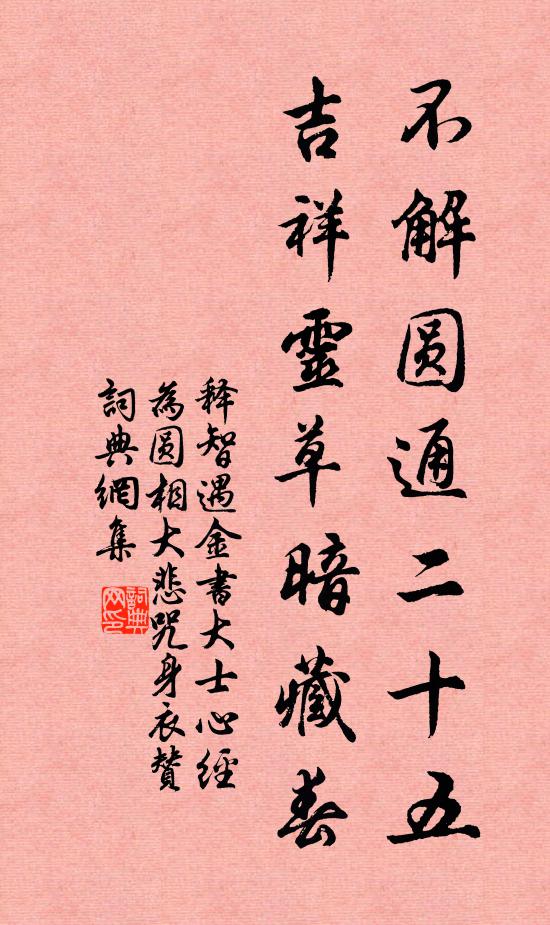 不解圆通二十五
吉祥靈草暗藏春
释智遇金書大士心經
為圆相大悲咒身衣赞
詞典網集
詞典网印